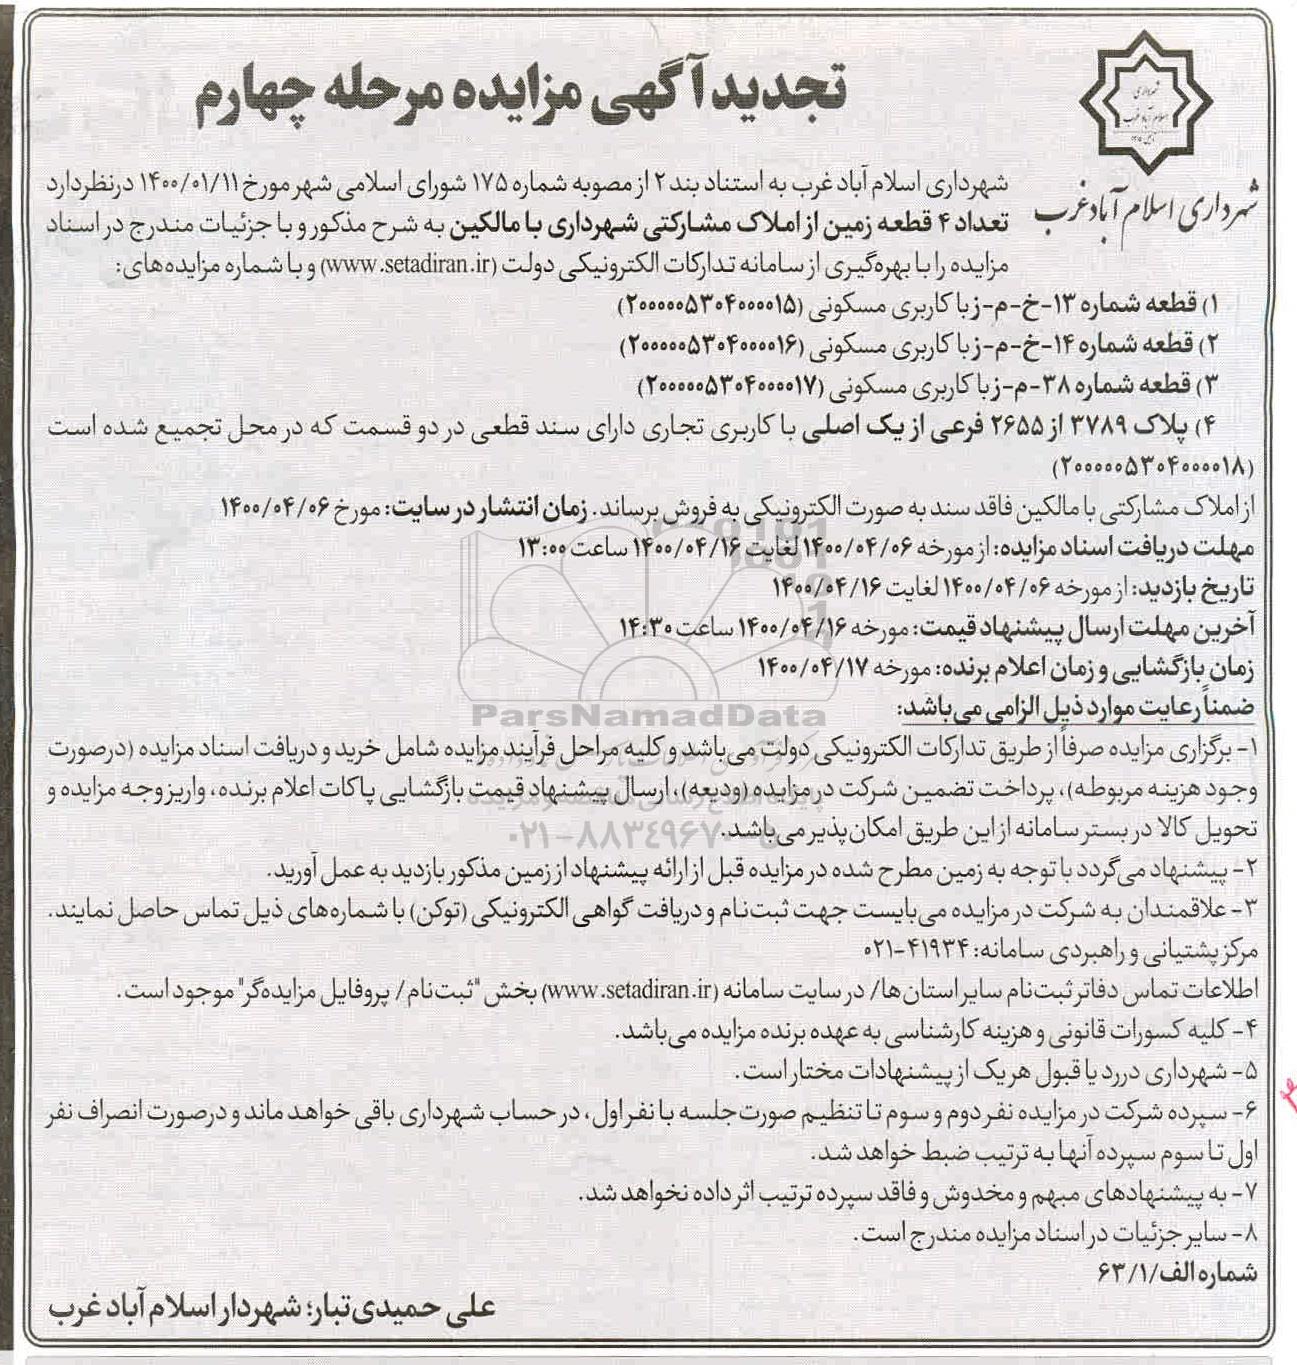 تجدید آگهی مزایده مرحله چهارم
شهرداری
اسلام آباد غرب
شهرداری اسلام آباد غرب
شهرداری اسلام آباد غرب به استناد بند ۲ از مصوبه شماره ۱۷۵ شورای اسلامی شهر مورخ ۱۴۰۰/۰۱/۱۱ درنظر دارد
تعداد ۴ قطعه زمین از املاک مشارکتی شهرداری با مالکین به شرح مذکور و با جزئیات مندرج در اسناد
مزایده را با بهره‌گیری از سامانه تدارکات الکترونیکی دولت (www.setadiran.ir) و با شماره مزایده‌های:
۱) قطعه شماره ۱۳-خ-م-ز با کاربری مسکونی (۲۰۰۰۰۰۵۳۰۴۰۰۰۰۱۵)
۲) قطعه شماره ۱۴-خ-م-ز با کاربری مسکونی (۲۰۰۰۰۰۵۳۰۴۰۰۰۰۱۶)
۳) قطعه شماره ۳۸-م-ز با کاربری مسکونی (۲۰۰۰۰۰۵۳۰۴۰۰۰۰۱۷)
۴) پلاک ۳۷۸۹ از ۲۶۵۵ فرعی از یک اصلی با کاربری تجاری دارای سند قطعی در دو قسمت که در محل تجمیع شده است
(۲۰۰۰۰۰۵۳۰۴۰۰۰۰۱۸)
از املاک مشارکتی با مالکین فاقد سند به صورت الکترونیکی به فروش برساند. زمان انتشار در سایت: مورخ ۱۴۰۰/۰۴/۰۶
مهلت دریافت اسناد مزایده: از مورخه ۱۴۰۰/۰۴/۰۶ لغایت ۱۴۰۰/۰۴/۱۶ ساعت ۱۳:۰۰
تاریخ بازدید: از مورخه ۱۴۰۰/۰۴/۰۶ لغایت ۱۴۰۰/۰۴/۱۶
آخرین مهلت ارسال پیشنهاد قیمت: مورخه ۱۴۰۰/۰۴/۱۶ ساعت ۱۴:۳۰
زمان بازگشایی و زمان اعلام برنده: مورخه ۱۴۰۰/۰۴/۱۷
ParsNamadData
ضمناً رعایت موارد ذیل الزامی می‌باشد:
۱- برگزاری مزایده صرفاً از طریق تدارکات الکترونیکی دولت می‌باشد و کلیه مراحل فرآیند مزایده شامل خرید و دریافت اسناد مزایده (درصورت
وجود هزینه مربوطه)، پرداخت تضمین شرکت در مزایده (ودیعه)، ارسال پیشنهاد قیمت بازگشایی پاکات اعلام برنده، واریز وجه مزایده و
تحویل کالا در بستر سامانه از این طریق امکان‌پذیر می‌باشد.
۰۲۱-۸۸۳٤۹۶۷۰
۲- پیشنهاد می‌گردد با توجه به زمین مطرح شده در مزایده قبل از ارائه پیشنهاد از زمین مذکور بازدید به عمل آورید.
۳- علاقمندان به شرکت در مزایده می‌بایست جهت ثبت‌نام و دریافت گواهی الکترونیکی (توکن) با شماره‌های ذیل تماس حاصل نمایند.
مرکز پشتیانی و راهبردی سامانه: ۴۱۹۳۴-۰۲۱
اطلاعات تماس دفاتر ثبت‌نام سایر استان‌ها/ در سایت سامانه (www.setadiran.ir) بخش "ثبت‌نام/ پروفایل مزایده‌گر" موجود است.
۴- کلیه کسورات قانونی و هزینه کارشناسی به عهده برنده مزایده می‌باشد.
۵- شهرداری در رد یا قبول هر یک از پیشنهادات مختار است.
۶- سپرده شرکت در مزایده نفر دوم و سوم تا تنظیم صورت‌جلسه با نفر اول، در حساب شهرداری باقی خواهد ماند و درصورت انصراف نفر
اول تا سوم سپرده آنها به ترتیب ضبط خواهد شد.
۷- به پیشنهادهای مبهم و مخدوش و فاقد سپرده ترتیب اثر داده نخواهد شد.
۸- سایر جزئیات در اسناد مزایده مندرج است.
شماره الف/۶۳/۱
علی حمیدی‌تبار؛ شهردار اسلام آباد غرب